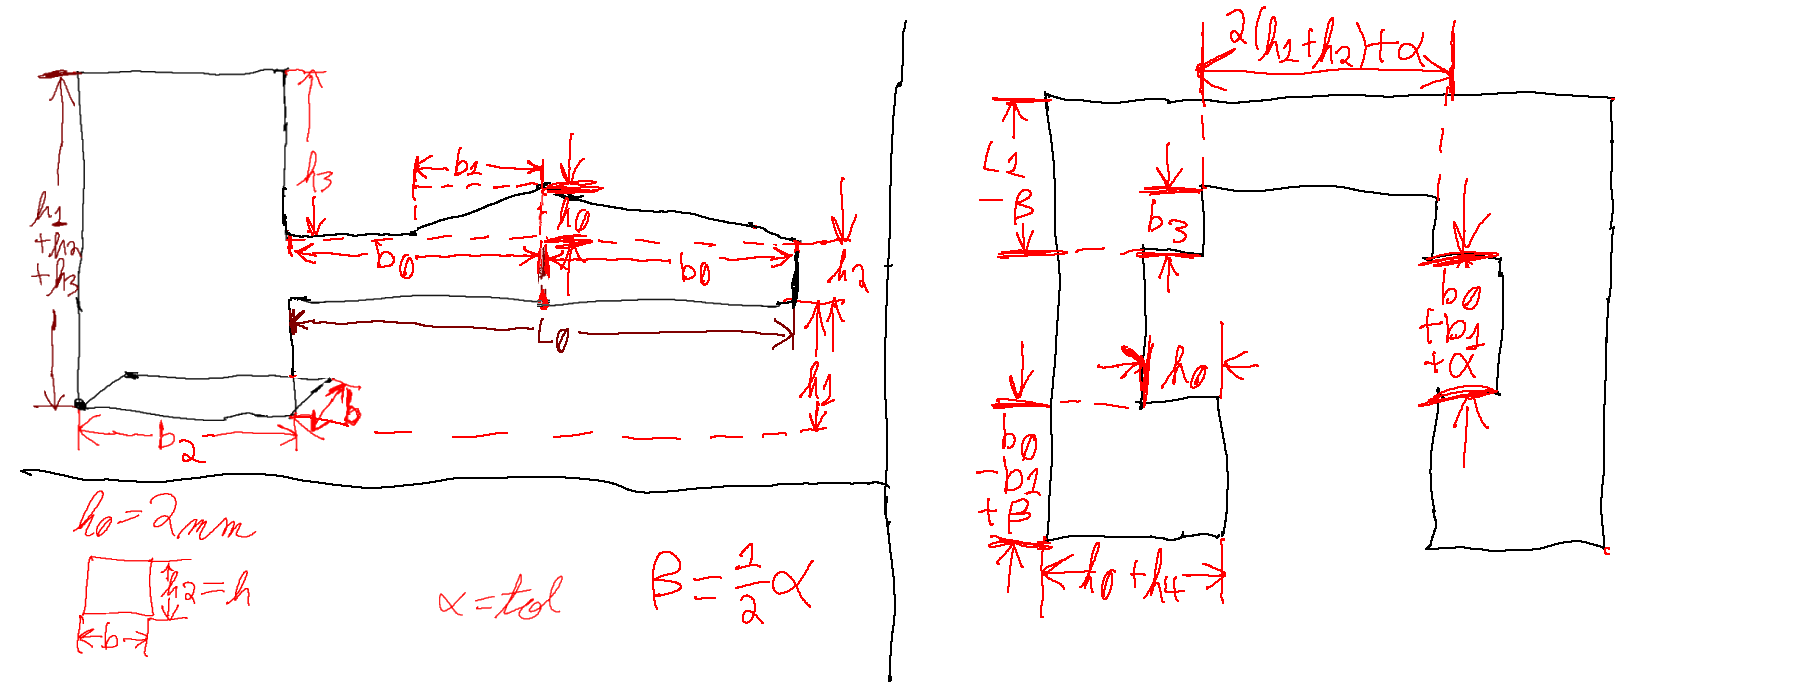 h1
+h2
+h3
h3
b1
h0
b0
b0
h2
L0
h1
b
b2
h0=2mm
h2=h
b
α=tol
β=1/2α
2(h1+h2)+α
L1
-β
b3
b0
+b1
+α
h0
b0
-b1
+β
h0+h4